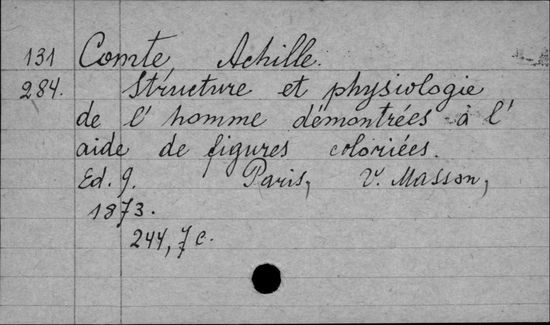 131 Comte, Achille.
284. Structure et physiologie
de l' homme démontrées à l'
aide de figures coloriées.
Ed. 9. Paris, V. Masson,
1873.
244, 7 c.